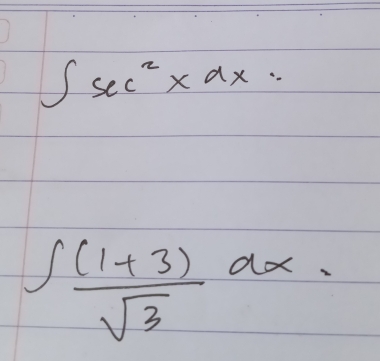 ∫ sec² x dx.
∫ (1+3)/√3 dx.